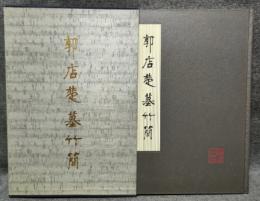 郭店楚墓竹簡
郭店楚墓竹簡